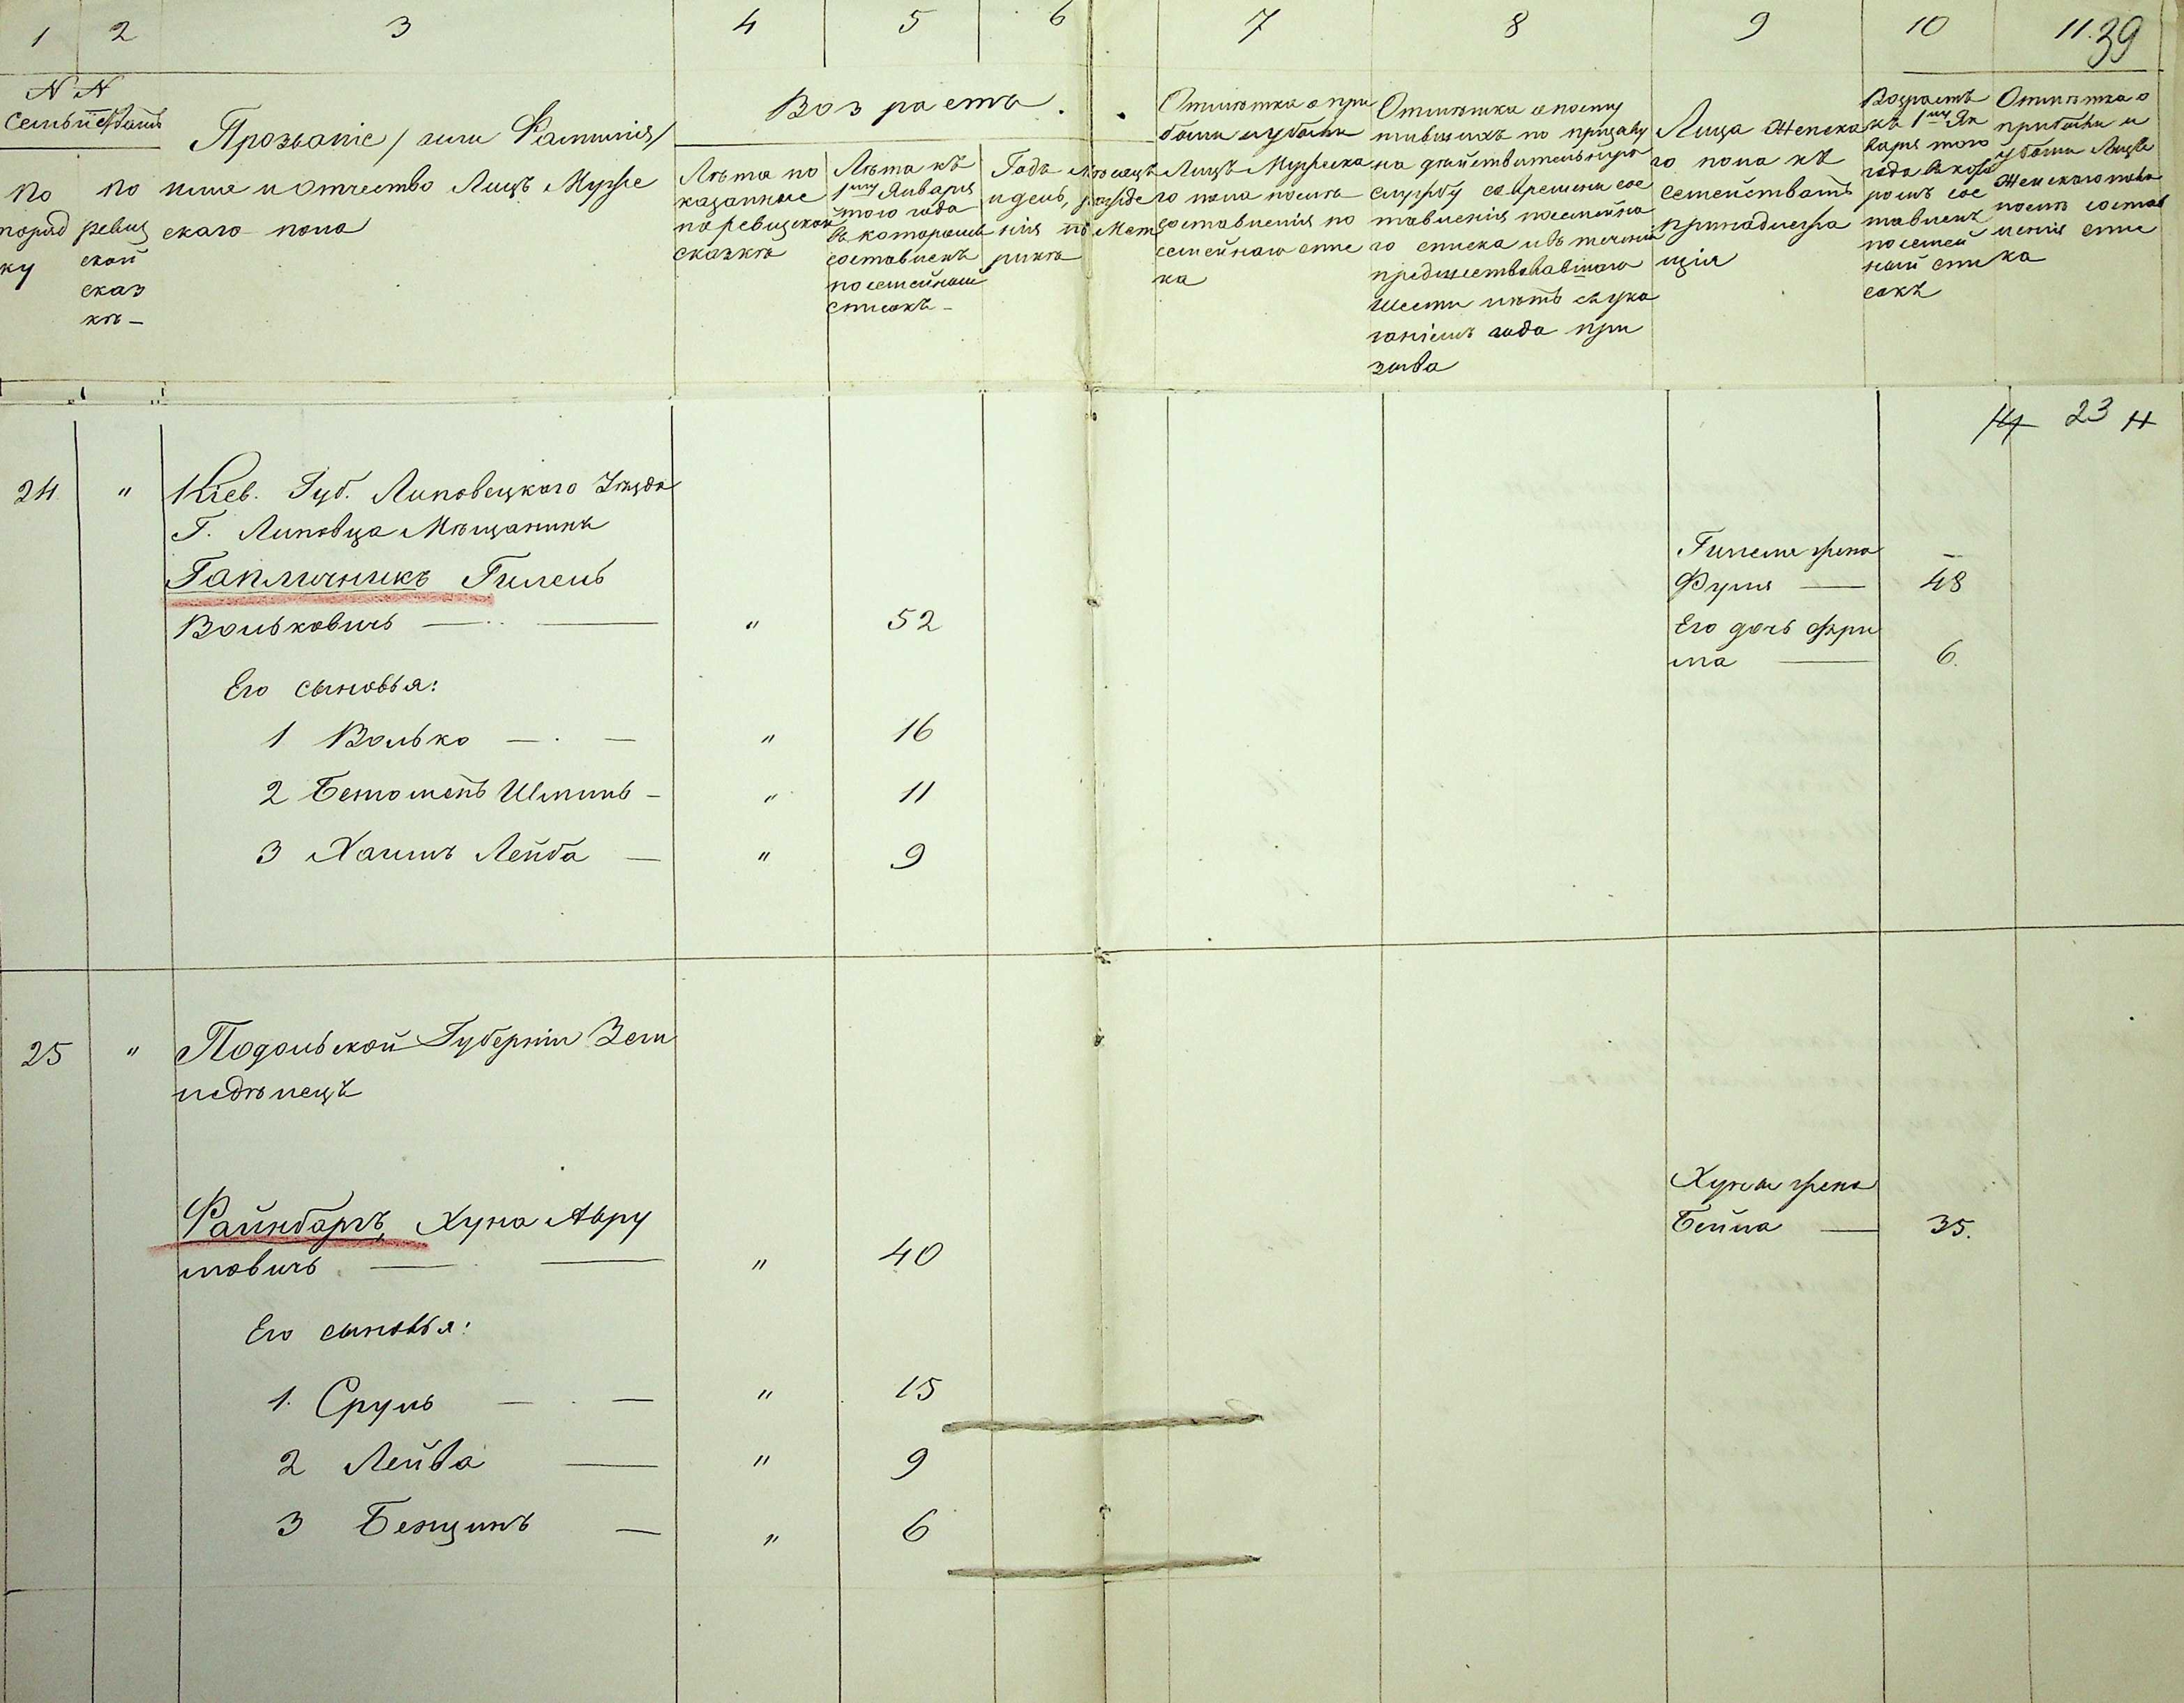 1 2 3 4 5 6 7 8 9 10 11. 39
N N
Семьи
По
поряд
ку
По
ревиз
ской
сказ
кѣ –
Прозваніе / или Фамилія /
имя и отчество Лицъ Мужс
скаго пола
Возрастъ.
Лѣта по
казанные
по ревизской
сказкѣ
Лѣта къ
1му Января
того года
въ которомъ
составленъ
посемейный
списокъ –
Годъ Мѣсяцъ
и день, рожде
нія по Мет
рикѣ
Отмѣтка о при
были и убыли
Лицъ Мужеска
го пола послѣ
составленія по
семейнаго спис
ка
Отмѣтка о посту
пившихъ по призыву
на дѣйствительную
службу со времени сос
тавленія посемейна
го списка и въ теченіи
предшествовавшаго
шести лѣтъ съ ука
заніемъ года при
зыва
Лица Женска
го пола къ
семействамъ
принадлежа
щія
Возрастъ
къ 1му Ян
варя того
года въ кото
ромъ сос
тавленъ
посемей
ный спи
сокъ
Отмѣтка о
прибыли и
убыли Лицъ
Женскаго пола
послѣ состав
ленія спис
ка
23
24 " Кіев. Губ. Липовецкаго Уѣзда
Г. Липовца Мѣщанинъ
Гапличникъ Гилель
Волькович — " 52
Гилеля жена
Фуля — 48
Его дочь Фри
ма — 6.
Его сыновья:
1 Волько — " 16
2 Шмиль – " 11
3 Хаимъ Лейба — " 9
25 " Подольской Губерніи Зем
ледѣлецъ
Файнбаргъ, Хуна Авру
мовичъ — " 40
Хуны жена
Бейла — 35.
Его сыновья:
1. Сруль — " 15
2 Лейба — " 9
3 Бенционъ — " 6